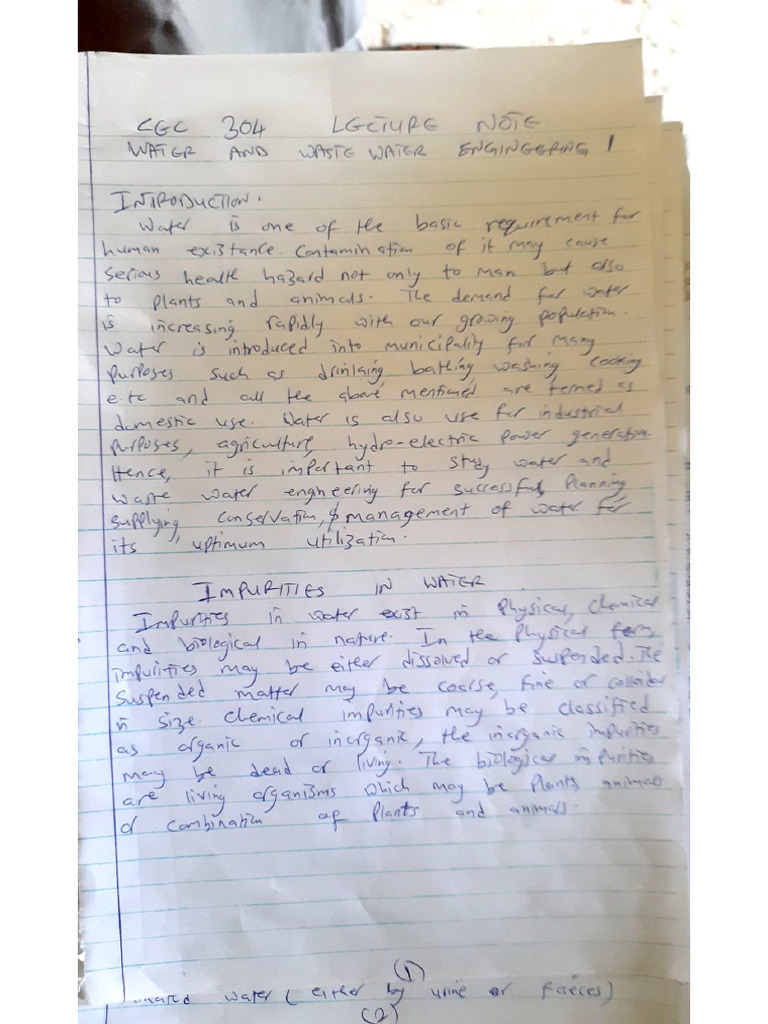 CEC 304 LECTURE NOTE
WATER AND WASTE WATER ENGINEERING 1
INTRODUCTION.
Water is one of the basic requirement for
human existance. Contamination of it may cause
serious health hazard not only to man but also
to plants and animals. The demand for water
is increasing rapidly with our growing population.
Water is introduced into municipality for many
purposes such as drinking bathing washing cooking
e.tc and all the above mentioned are termed as
domestic use. Water is also use for industrial
purposes, agriculture, hydro-electric power generation.
Hence, it is important to study water and
waste water engineering for successful, planning
supplying conservation, & management of water for
its optimum utilization.
IMPURITIES IN WATER
Impurities in water exist in physical, chemical
and biological in nature. In the physical form,
impurities may be either dissolved or suspended. The
suspended matter may be coarse, fine or colloidal
in size. Chemical impurities may be classified
as organic or inorganic, the inorganic impurities
may be dead or living. The biological impurities
are living organisms which may be plants, animals
or combination of plants and animals.
(1)
water (either by urine or faeces)
(2)